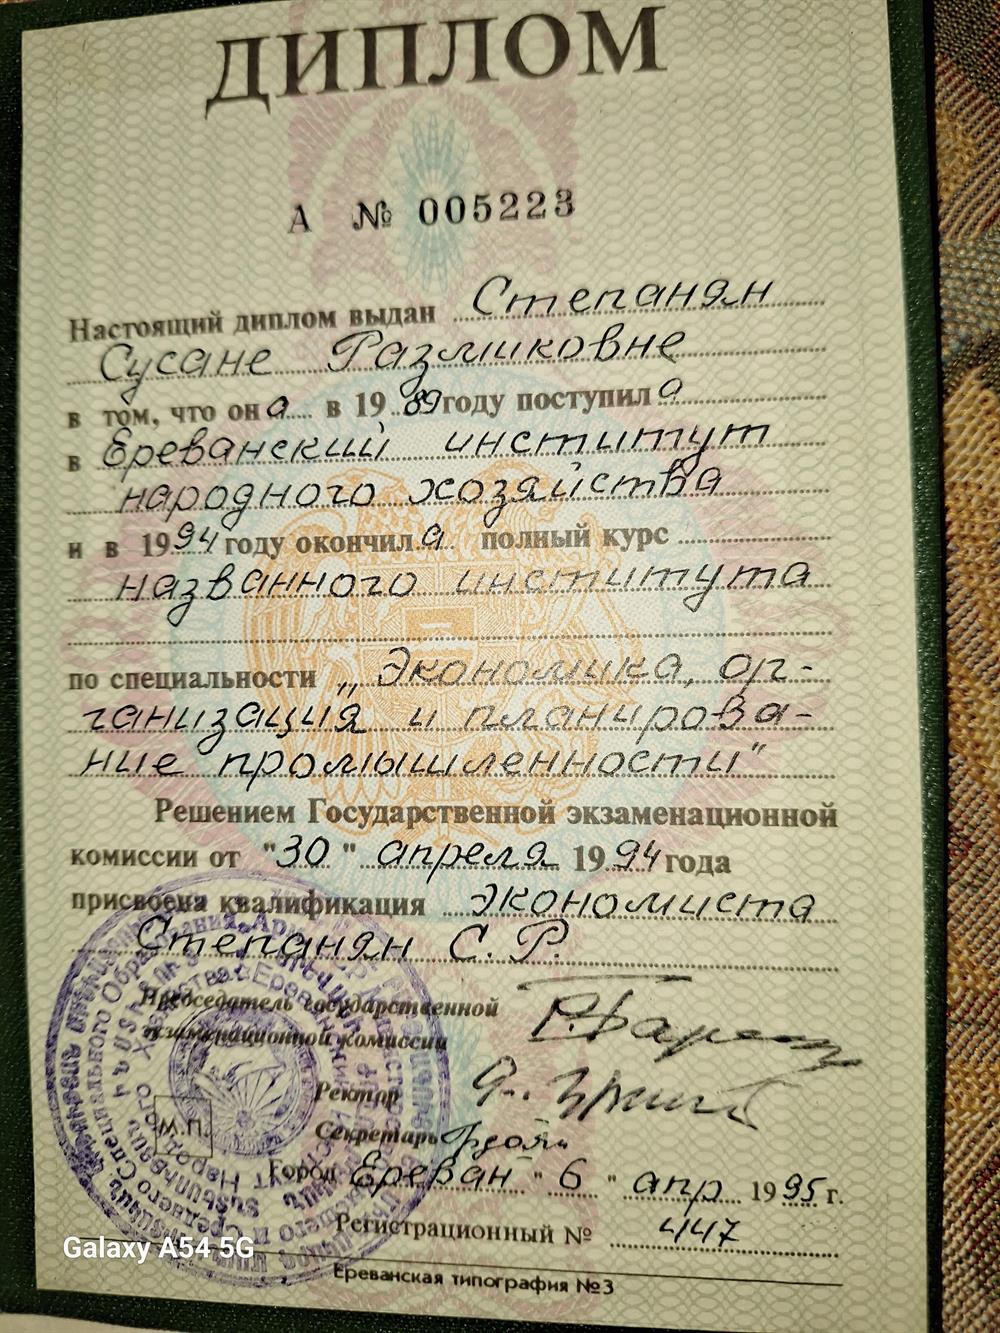 ДИПЛОМ
А № 005223
Настоящий диплом выдан Степанян
Сусане Размиковне
в том, что она в 1989 году поступила
в Ереванский институт
народного хозяйства
и в 1994 году окончила полный курс
названного института
по специальности „Экономика, ор-
ганизация и планирова-
ние промышленности"
Решением Государственной экзаменационной
комиссии от "30" апреля 1994 года
присвоена квалификация экономиста
Степанян С. Р.
Председатель государственной
экзаменационной комиссии
Ректор
Секретарь
М.П.
Город Ереван "6" апр 1995 г.
Регистрационный № 447
Ереванская типография №3
Galaxy A54 5G